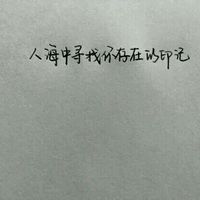 人海中寻找你存在的印记